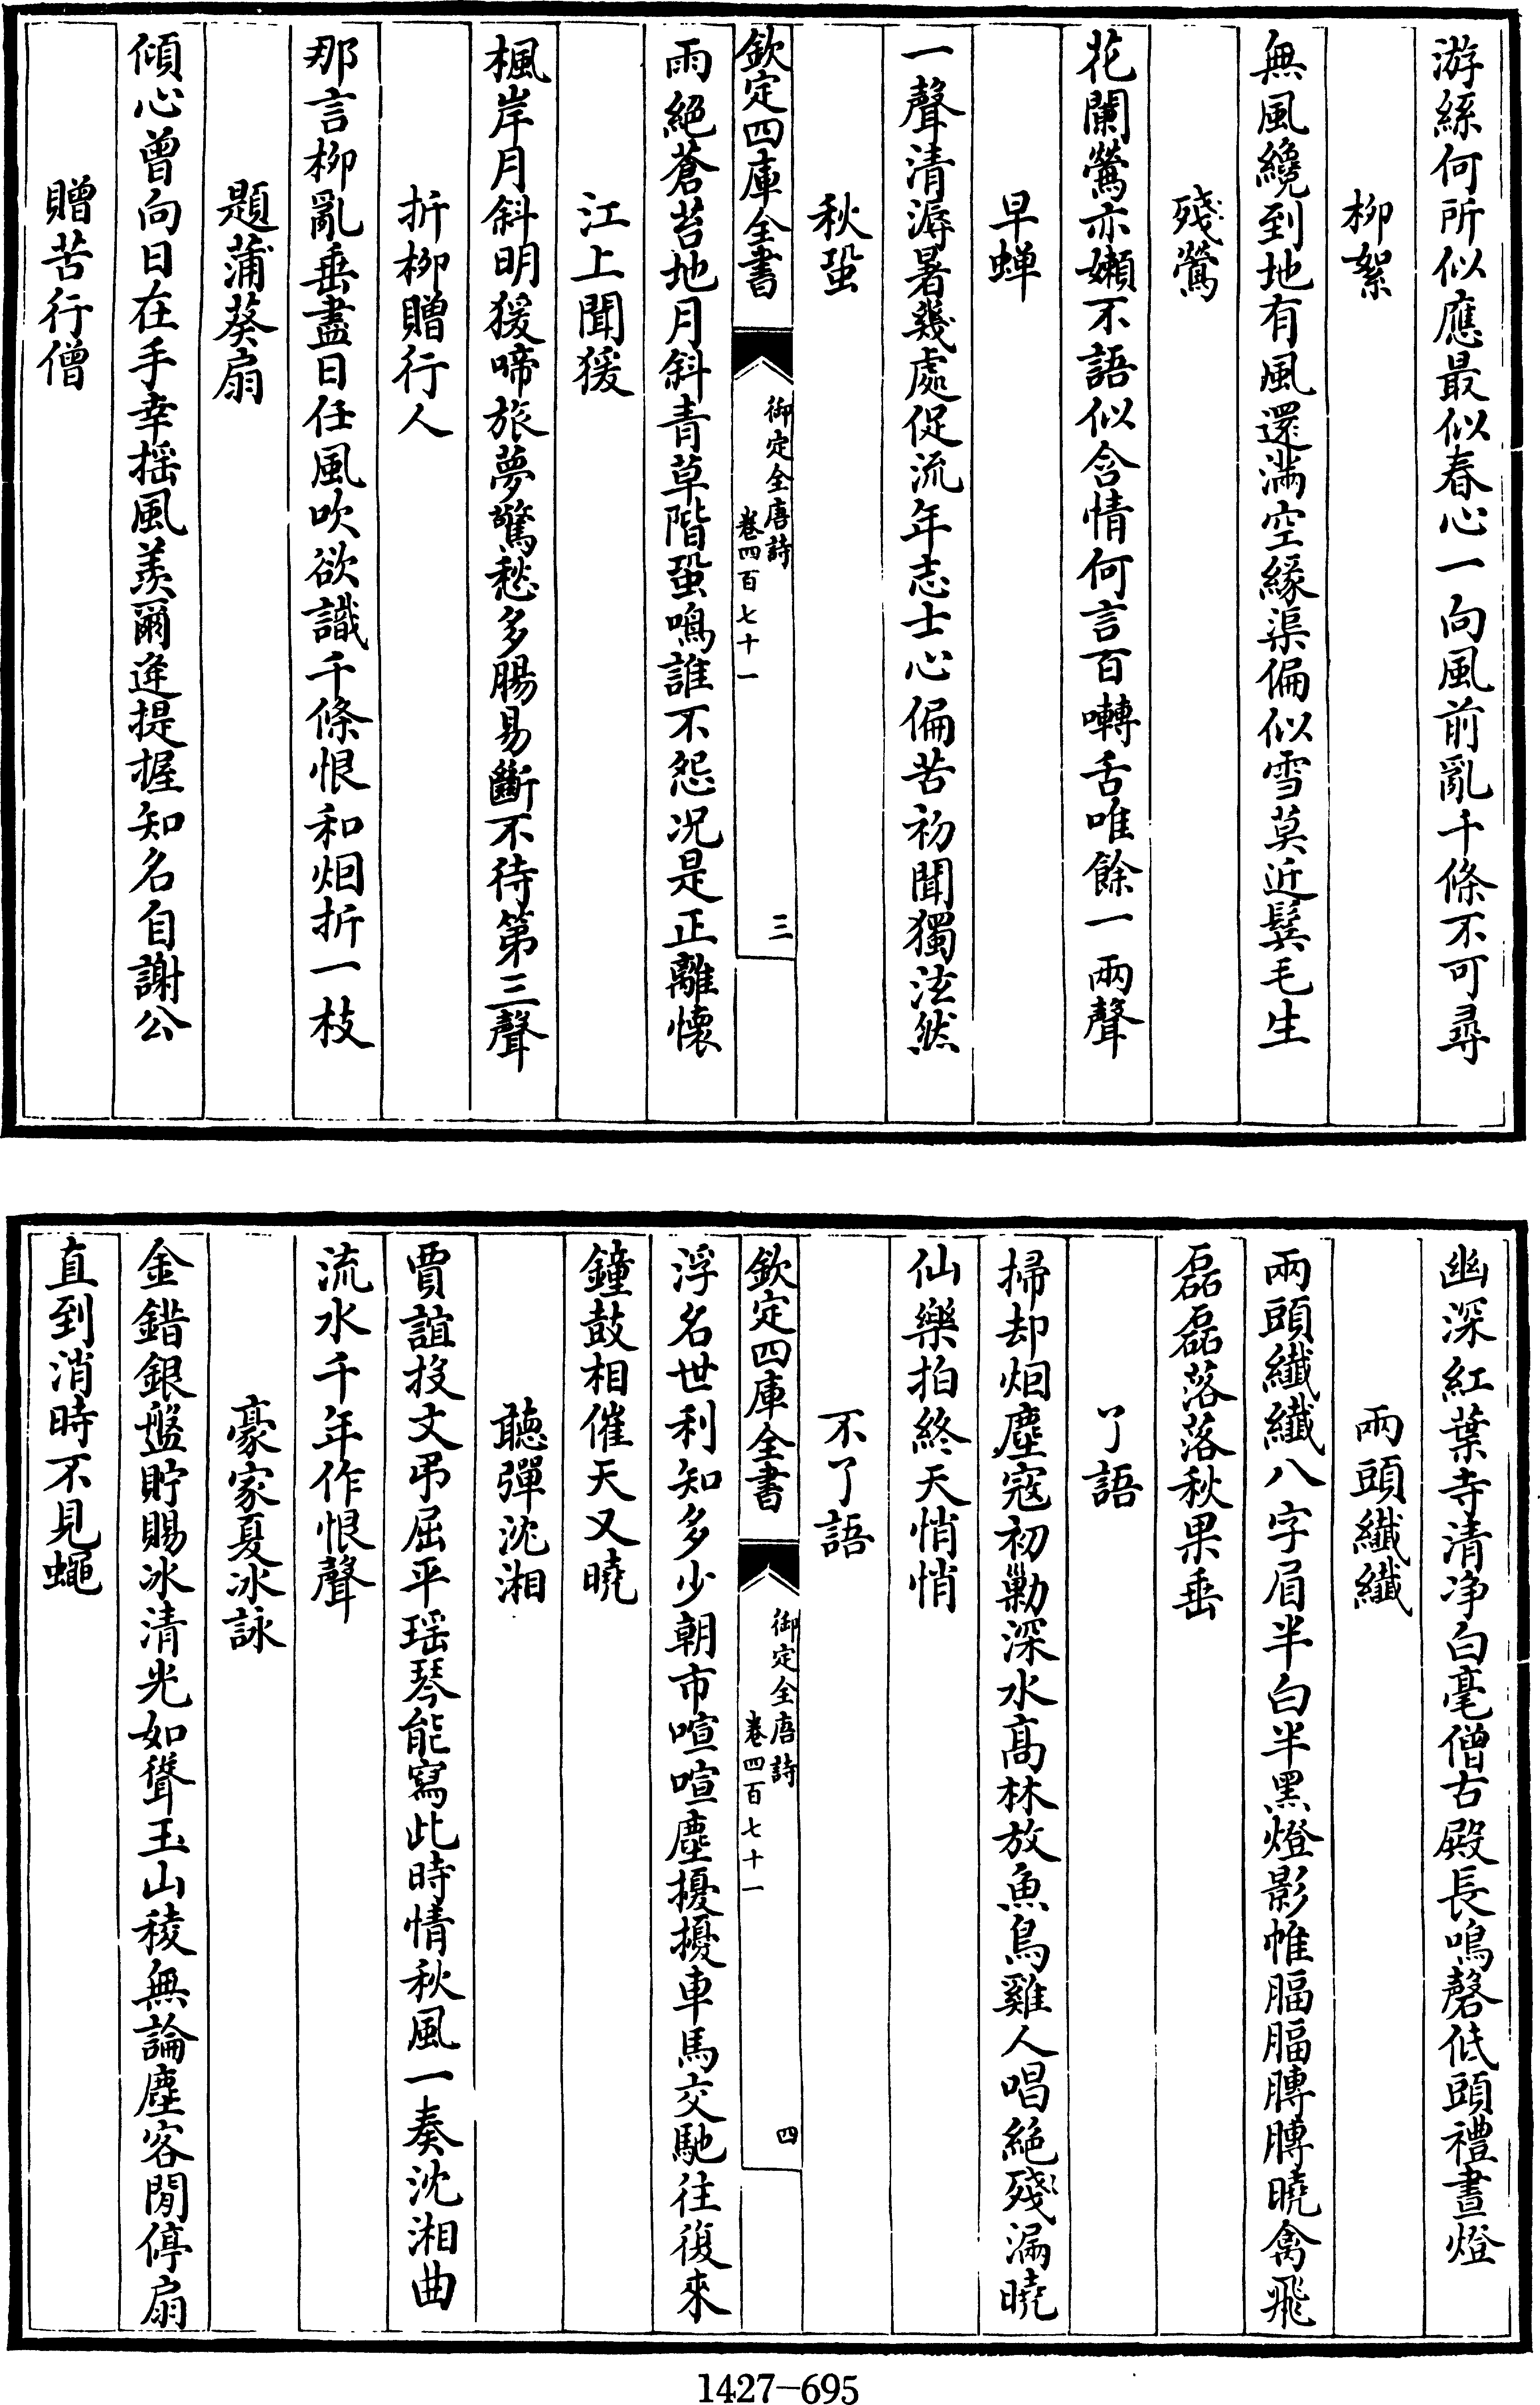 游絲何所似應最似春心一向風前亂千條不可尋
柳絮
無風纔到地有風還滿空緣渠偏似雪莫近鬂毛生
殘鶯
花闌鶯亦嬾不語似含情何言百囀舌唯餘一兩聲
早蟬
一聲清溽暑幾處促流年志士心偏苦初聞獨泫然
秋蛩
欽定四庫全書
御定全唐詩
卷四百七十一
三
雨絕蒼苔地月斜青草階蛩鳴誰不怨况是正離懷
江上聞猨
楓岸月斜明猨啼旅夢驚愁多腸易斷不待第三聲
折柳贈行人
那言柳亂垂盡日任風吹欲識千條恨和烟折一枝
題蒲葵扇
傾心曾向日在手幸摇風羨爾逄提握知名自謝公
贈苦行僧
幽深紅葉寺清净白毫僧古殿長鳴磬低頭禮晝燈
兩頭纖纖
兩頭纖纖八字眉半白半黑燈影帷腷腷膊膊曉禽飛
磊磊落落秋果垂
了語
掃却烟塵寇初勦深水髙林放魚鳥雞人唱絶殘漏曉
仙樂拍終天悄悄
不了語
欽定四庫全書
御定全唐詩
卷四百七十一
四
浮名世利知多少朝市喧喧塵擾擾車馬交馳往復來
鐘鼓相催天又曉
聽彈沈湘
賈誼投文弔屈平瑶琴能寫此時情秋風一奏沈湘曲
流水千年作恨聲
豪家夏冰詠
金錯銀盤貯賜冰清光如聳玉山稜無論塵客閒停扇
直到消時不見蠅
1427-695